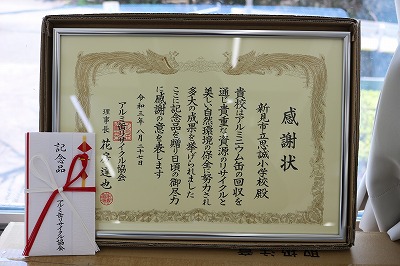 感謝状
新見市立思誠小学校殿
貴校はアルミニウム缶の回収を
通じ貴重な資源のリサイクルと
美しい自然環境の保全に努力され
多大の成果を挙げられました
ここに記念品を贈り日頃の御尽力
に感謝の意を表します
令和三年八月二十七日
アルミ缶リサイクル協会
理事長 花 達也
記念品
アルミ缶リサイクル協会